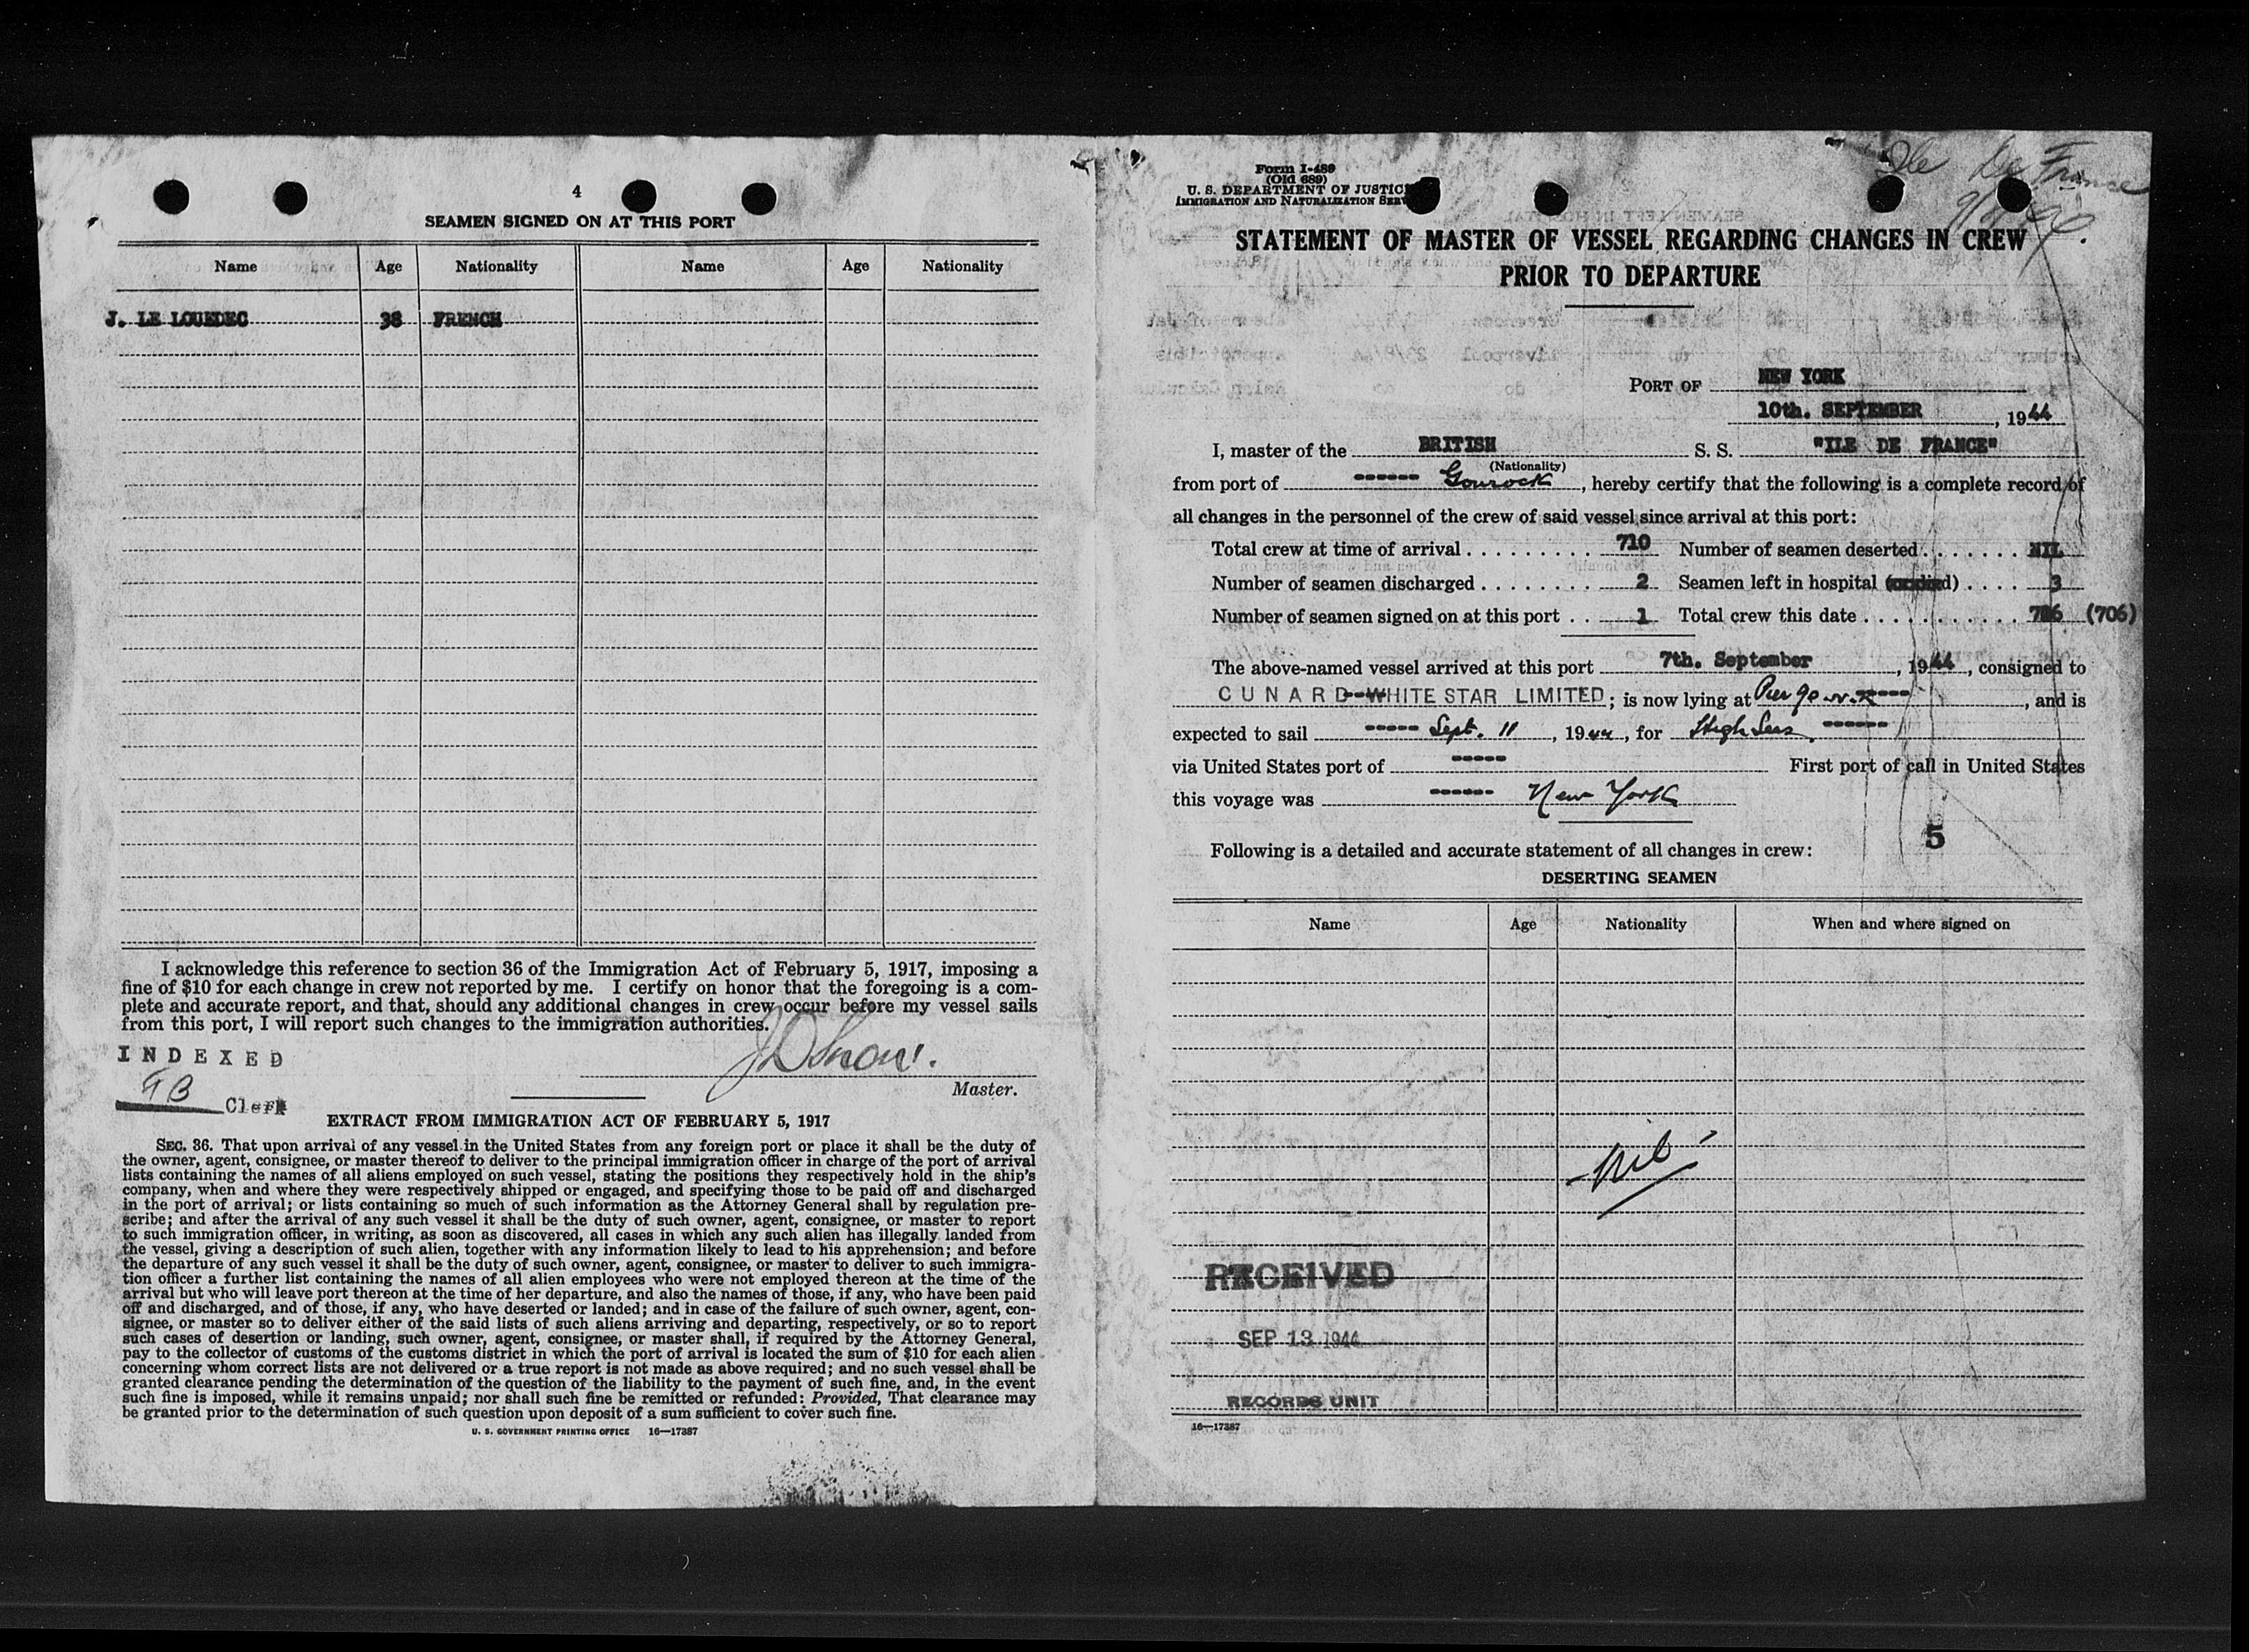 4
SEAMEN SIGNED ON AT THIS PORT
Name Age Nationality Name Age Nationality
J. LE LOUEDEC 38 FRENCH
I acknowledge this reference to section 36 of the Immigration Act of February 5, 1917, imposing a
fine of $10 for each change in crew not reported by me. I certify on honor that the foregoing is a com-
plete and accurate report, and that, should any additional changes in crew occur before my vessel sails
from this port, I will report such changes to the immigration authorities.
INDEXED
Clerk
Master.
EXTRACT FROM IMMIGRATION ACT OF FEBRUARY 5, 1917
SEC. 36. That upon arrival of any vessel in the United States from any foreign port or place it shall be the duty of
the owner, agent, consignee, or master thereof to deliver to the principal immigration officer in charge of the port of arrival
lists containing the names of all aliens employed on such vessel, stating the positions they respectively hold in the ship's
company, when and where they were respectively shipped or engaged, and specifying those to be paid off and discharged
in the port of arrival; or lists containing so much of such information as the Attorney General shall by regulation pre-
scribe; and after the arrival of any such vessel it shall be the duty of such owner, agent, consignee, or master to report
to such immigration officer, in writing, as soon as discovered, all cases in which any such alien has illegally landed from
the vessel, giving a description of such alien, together with any information likely to lead to his apprehension; and before
the departure of any such vessel it shall be the duty of such owner, agent, consignee, or master to deliver to such immigra-
tion officer a further list containing the names of all alien employees who were not employed thereon at the time of the
arrival but who will leave port thereon at the time of her departure, and also the names of those, if any, who have been paid
off and discharged, and of those, if any, who have deserted or landed; and in case of the failure of such owner, agent, con-
signee, or master so to deliver either of the said lists of such aliens arriving and departing, respectively, or so to report
such cases of desertion or landing, such owner, agent, consignee, or master shall, if required by the Attorney General,
pay to the collector of customs of the customs district in which the port of arrival is located the sum of $10 for each alien
concerning whom correct lists are not delivered or a true report is not made as above required; and no such vessel shall be
granted clearance pending the determination of the question of the liability to the payment of such fine, and, in the event
such fine is imposed, while it remains unpaid; nor shall such fine be remitted or refunded: Provided, That clearance may
be granted prior to the determination of such question upon deposit of a sum sufficient to cover such fine.
U. S. GOVERNMENT PRINTING OFFICE 16—17387
Form I-489
(Old 689)
U. S. DEPARTMENT OF JUSTICE
IMMIGRATION AND NATURALIZATION SERV
Ile De France
STATEMENT OF MASTER OF VESSEL REGARDING CHANGES IN CREW
PRIOR TO DEPARTURE
PORT OF NEW YORK
10th. SEPTEMBER, 1944
I, master of the BRITISH S. S. "ILE DE FRANCE"
(Nationality)
from port of ------ Gourock, hereby certify that the following is a complete record of
all changes in the personnel of the crew of said vessel since arrival at this port:
Total crew at time of arrival . . . . . . . . . 710 Number of seamen deserted . . . . . . . NIL
Number of seamen discharged . . . . . . . . 2 Seamen left in hospital . . . . 3
Number of seamen signed on at this port . . 1 Total crew this date . . . . . . . . . . . 706 (706)
The above-named vessel arrived at this port 7th. September, 1944, consigned to
CUNARD--WHITE STAR LIMITED; is now lying at Pier 90 N.R. ----, and is
expected to sail ----- Sept. 11, 1944, for High Seas. ------
via United States port of ----- First port of call in United States
this voyage was ------ New York
5
Following is a detailed and accurate statement of all changes in crew:
DESERTING SEAMEN
Name Age Nationality When and where signed on
- Nil -
RECEIVED
SEP 13 1944
RECORDS UNIT
16—17387